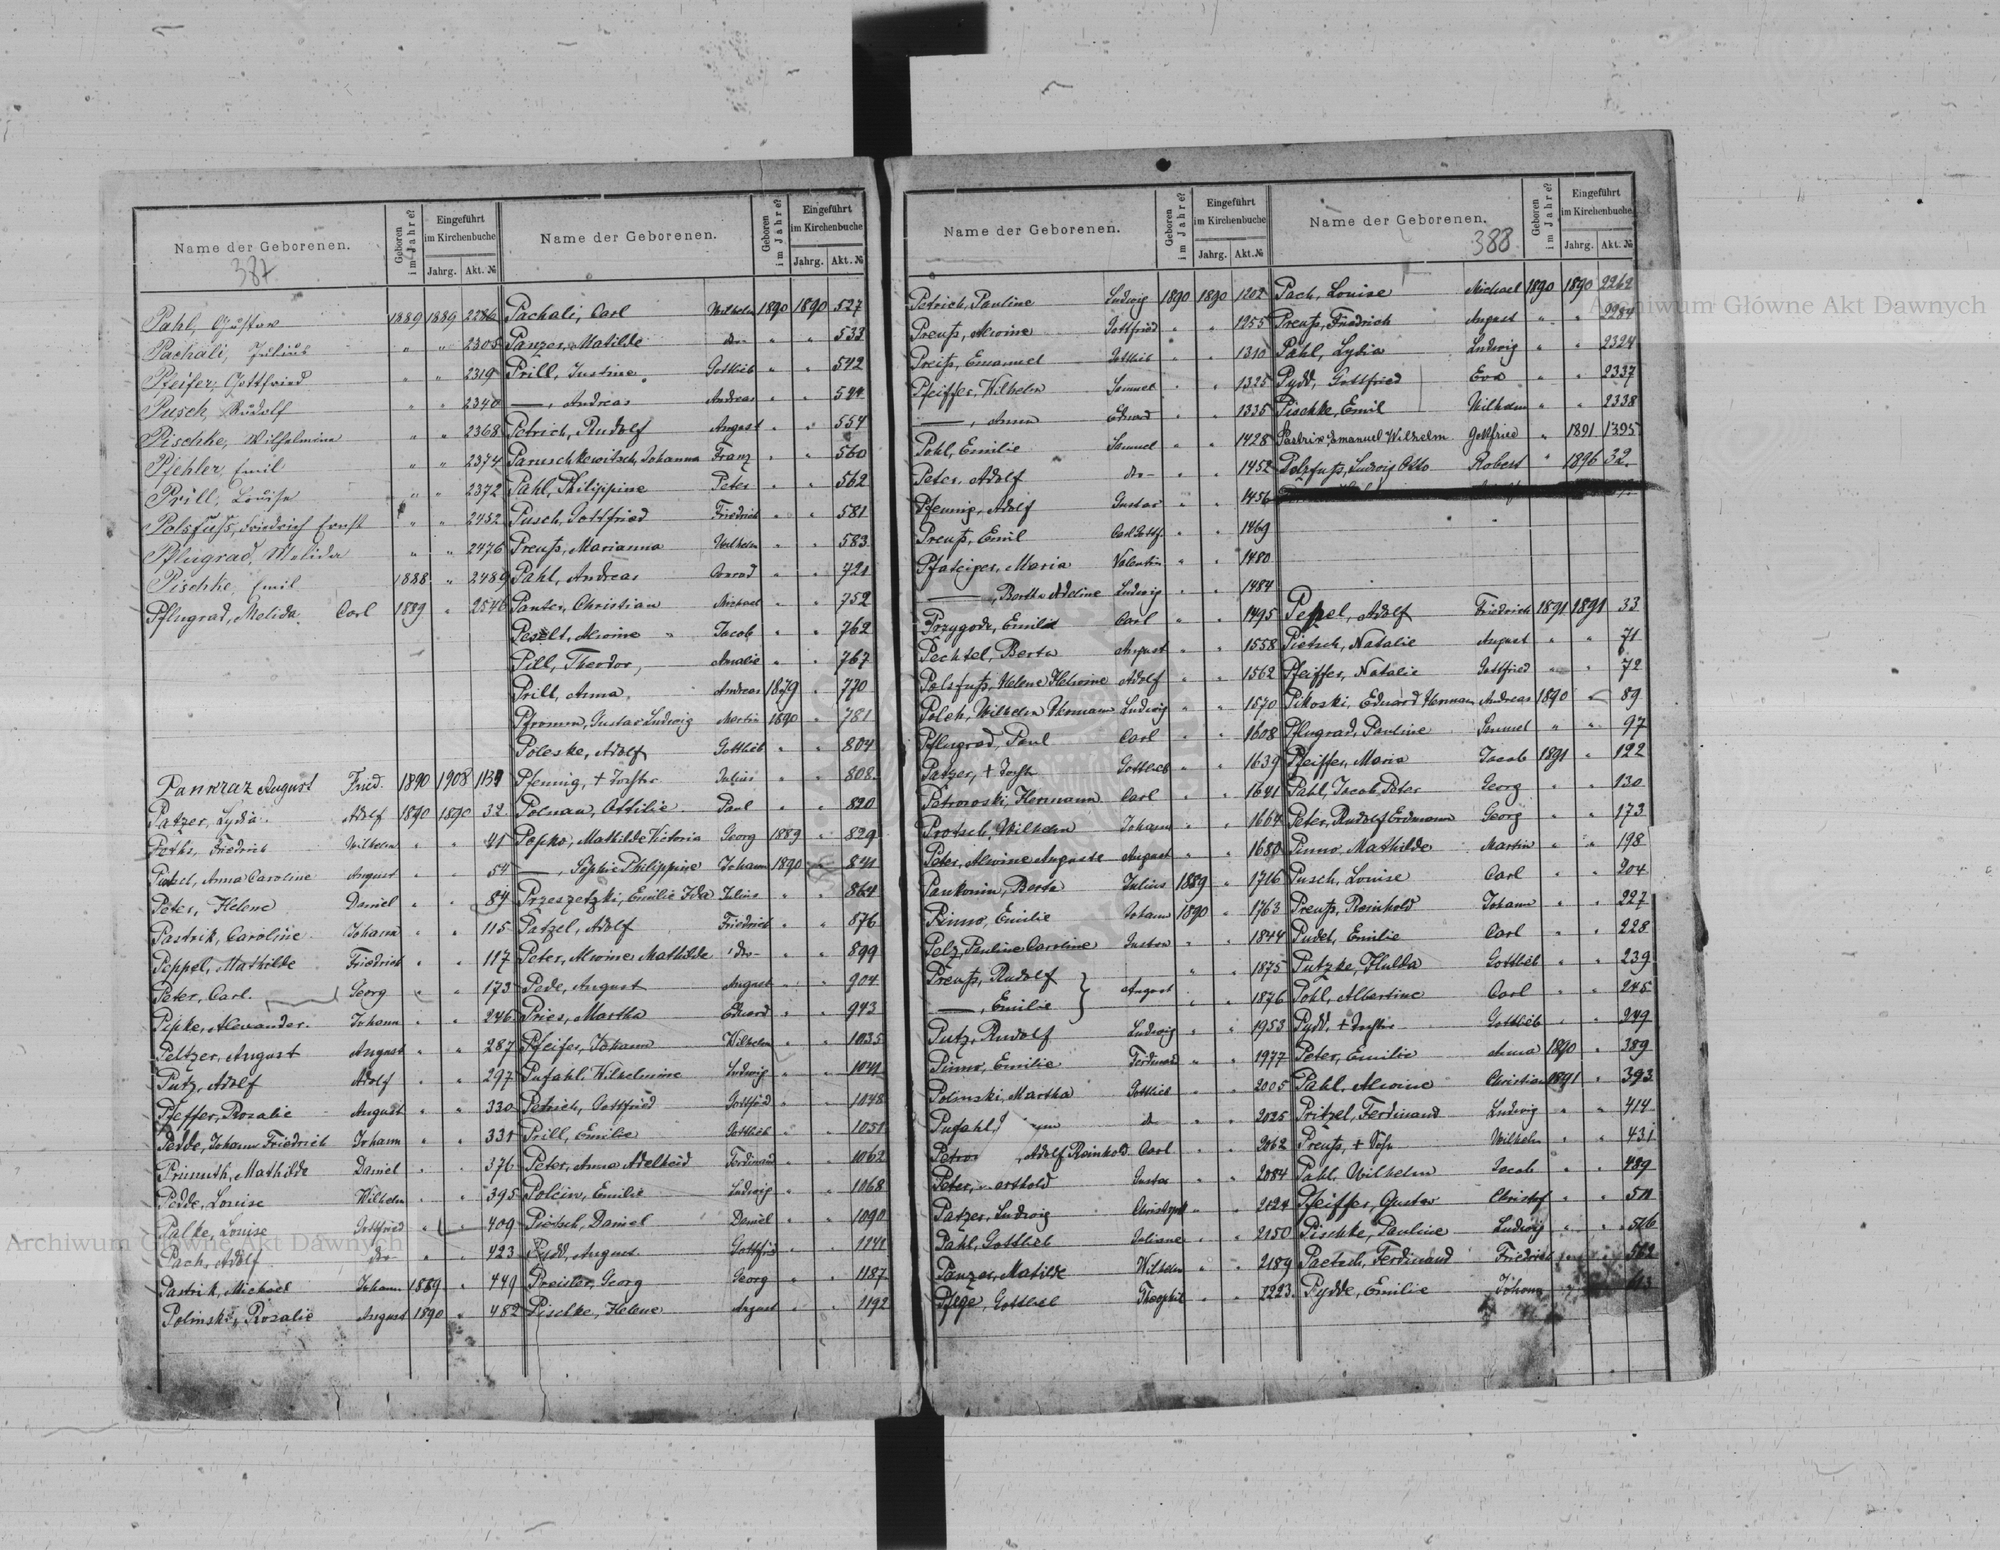 Name der Geborenen.
387
Geboren im Jahre?
Eingeführt im Kirchenbuche
Jahrg. Akt. №
Pahl, Gustav 1889 1889 2286
Pachali, Julius " " 2305
Pfeifer, Gottfried " " 2319
Pusch, Rudolf " " 2340
Pischke, Wilhelmine " " 2368
Pfehler, Emil " " 2374
Prill, Louise " " 2372
Polsfuss, Friedrich Ernst " " 2452
Pflugrad, Melida " " 2476
Pischke, Emil 1888 " 2489
Pflugrad, Melida. Carl 1889 " 2546
Pankraz August Fried. 1890 1908 1139
Patzer, Lydia. Adolf 1890 1890 32
Friedrich Wilhelm " " 41
Anna Caroline August " " 54
Peter, Helene Daniel " " 84
Pastrik, Caroline Johann " " 115
Peppel, Mathilde Friedrich " " 117
Peter, Carl. Georg " " 173
Pipke, Alexander. Johann " " 246
Peltzer, August August " " 287
Putz, Adolf Adolf " " 297
Pfeffer, Rozalie August " " 330
Pedde, Johann Friedrich Johann " " 331
Primuth, Mathilde Daniel " " 376
Pedde, Louise Wilhelm " " 395
Palke, Louise Gottfried " " 409
Pach, Adolf do- " " 423
Pastrik, Michael Johann 1889 " 449
Polinski, Rozalie August 1890 " 482
Name der Geborenen.
Geboren im Jahre?
Eingeführt im Kirchenbuche
Jahrg. Akt. №
Pachali, Carl Wilhelm 1890 1890 527
Panzer, Matilde do- " " 533
Prill, Justine Gottlieb " " 542
—, Andreas Andreas " " 544
Petrich, Rudolf August " " 554
Paruschkewitsch, Johanna Franz " " 560
Pahl, Philippine Peter " " 562
Pusch, Gottfried Friedrich " " 581
Preuß, Marianna Wilhelm " " 583
Pahl, Andreas Conrad " " 721
Panter, Christian Michael " " 752
Peselt, Alwine Jacob " " 762
Pill, Theodor, Amalie " " 767
Prill, Anna, Andreas 1879 " 770
Pfromm, Gustav Ludwig Martin 1890 " 781
Poleske, Adolf Gottlieb " " 804
Pfennig, + Tochter Julius " " 808
Polnau, Ottilie Paul " " 820
Popko, Mathilde Victoria Georg 1889 " 829
—, Sophie Philippine Johann 1890 " 841
Przeszetzki, Emilie Ida Julius " " 864
Patzel, Adolf Friedrich " " 876
Peter, Alwine Mathilde do- " " 899
Pede, August August " " 904
Pries, Martha Eduard " " 943
Pfeifer, Johann Wilhelm " " 1035
Pufahl, Wilhelmine Ludwig " " 1041
Petrich, Gottfried Gottfried " " 1048
Prill, Emilie Gottlieb " " 1051
Peter, Anna Adelheid Ferdinand " " 1062
Polcin, Emilie Ludwig " " 1068
Pietsch, Daniel Daniel " " 1090
Pydd, August Gottfried " " 1141
Preister, Georg Georg " " 1187
Pischke, Helene August " " 1192
Name der Geborenen.
Geboren im Jahre?
Eingeführt im Kirchenbuche
Jahrg. Akt. №
Petrich, Pauline Ludwig 1890 1890 1202
Preuß, Alwine Gottfried " " 1255
Preiß, Emanuel Gottlieb " " 1310
Pfeiffer, Wilhelm Samuel " " 1325
—, Anna Eduard " " 1335
Pohl, Emilie Samuel " " 1428
Peter, Adolf do- " " 1452
Pfennig, Adolf Gustav " " 1456
Preuß, Emil Carl Gottf. " " 1469
Maria Valentin " " 1480
—, Bertha Adeline Ludwig " " 1484
Przygode, Emilie Carl " " 1495
Pechtel, Berta August " " 1558
Polsfuß, Helene Helwine Adolf " " 1562
Polch, Wilhelm Herman Ludwig " " 1570
Pflugrad, Paul Carl " " 1608
Patzer, + Tocht Gottlieb " " 1639
Petrowski, Hermann Carl " " 1641
Protsch, Wilhelm Johann " " 1664
Peter, Alwine Auguste August " " 1680
Pankonin, Berta Julius 1889 " 1716
Pinno, Emilie Johann 1890 " 1763
Pelz, Pauline Caroline Gustav " " 1844
Preuß, Rudolf } August " " 1875
—, Emilie } " " 1876
Putz, Rudolf Ludwig " " 1953
Pinno, Emilie Ferdinand " " 1977
Polinski, Martha Gottlieb " " 2005
Pufahl, do " " 2025
, Adolf Reinhold Carl " " 2062
Peter, Gustav " " 2084
Patzer, Ludwig Christoph " " 2124
Pahl, Gottlieb Juliane " " 2150
Panzer, Matilde Wilhelm " " 2189
Gottlieb Theophil " " 2223
Name der Geborenen.
388
Geboren im Jahre?
Eingeführt im Kirchenbuche
Jahrg. Akt. №
Pach, Louise Michael 1890 1890 2262
Preuß, Friedrich August " " 2284
Pahl, Lydia Ludwig " " 2324
Pydd, Gottfried Eva " " 2337
Pischke, Emil Wilhelm " " 2338
Pastrik Emanuel Wilhelm Gottfried " 1891 1395
Polzfuß, Ludwig Otto Robert " 1896 32
Peppel, Adolf Friedrich 1891 1891 33
Pietsch, Natalie August " " 71
Pfeiffer, Natalie Gottfried " " 72
Pikoski, Eduard Herman Andreas 1890 " 89
Pflugrad, Pauline Samuel " " 97
Pfeiffer, Maria Jacob 1891 " 122
Pahl, Jacob Peter Georg " " 130
Peter, Rudolf Erdmann Georg " " 173
Pinno, Mathilde Martin " " 198
Pusch, Louise Carl " " 204
Preuß, Reinhold Johann " " 227
Pudel, Emilie Carl " " 228
Putzke, Hulda Gottlieb " " 239
Pohl, Albertine Carl " " 245
Pydd, + Tochter Gottlieb " " 249
Peter, Emilie Anna 1890 " 389
Pahl, Alwine Christian 1891 " 393
Pritzel, Ferdinand Ludwig " " 414
Preuß, + Wilhelm " " 431
Pahl, Wilhelm Jacob " " 489
Pfeiffer, Gustav Christof " " 511
Pischke, Pauline Ludwig " " 516
Paetsch, Ferdinand Friedrich " " 562
Pydde, Emilie Johann
Archiwum Główne Akt Dawnych
Archiwum Główne Akt Dawnych